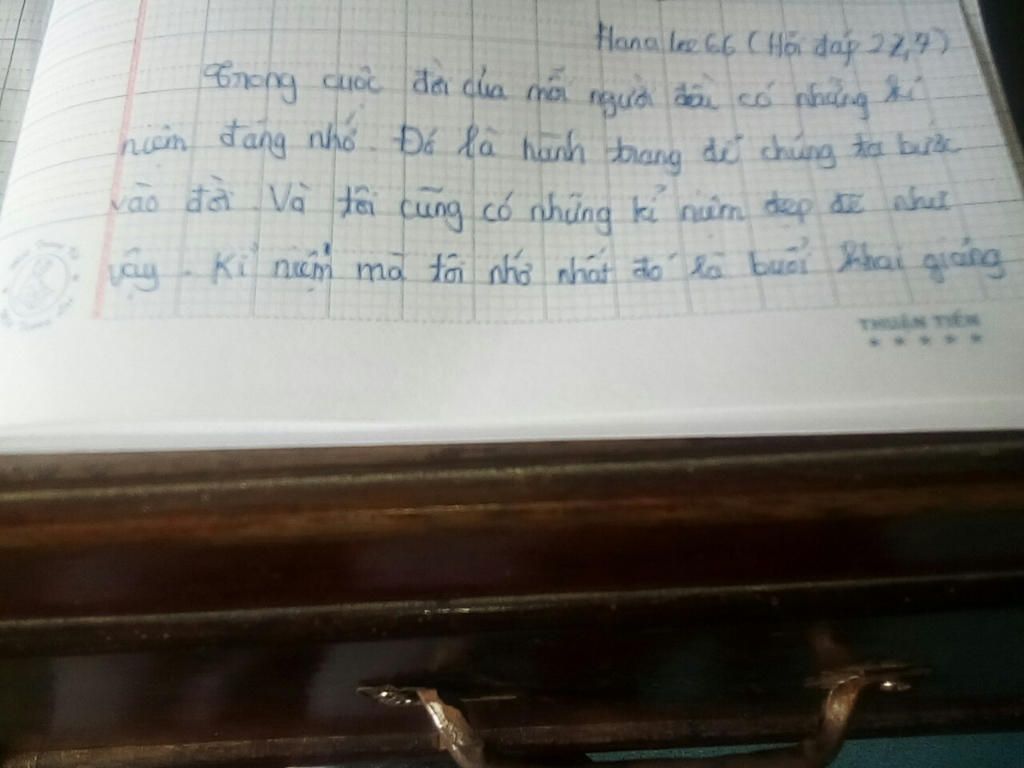 Hana lee 66 (Hỏi đáp 27,4)
Trong cuộc đời của mỗi người đều có những kỉ
niệm đáng nhớ. Đó là hành trang để chúng ta bước
vào đời. Và tôi cũng có những kỉ niệm đẹp đẽ như
vậy. Kỉ niệm mà tôi nhớ nhất đó là buổi khai giảng
THUẬN TIẾN